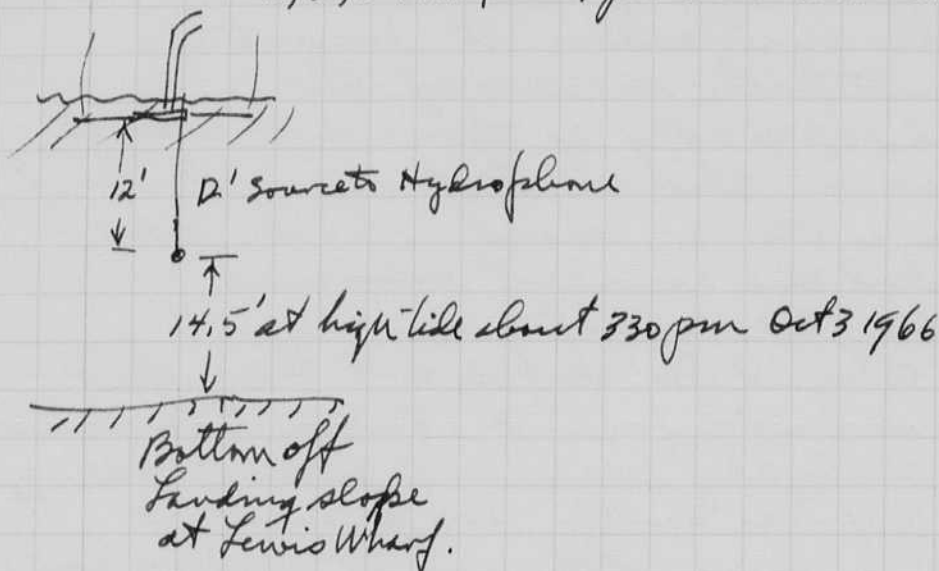 12' 12' source to Hydrophone
14.5' at high tide about 330 pm Oct 3 1966
Bottom off
Landing slope
at Lewis Wharf.